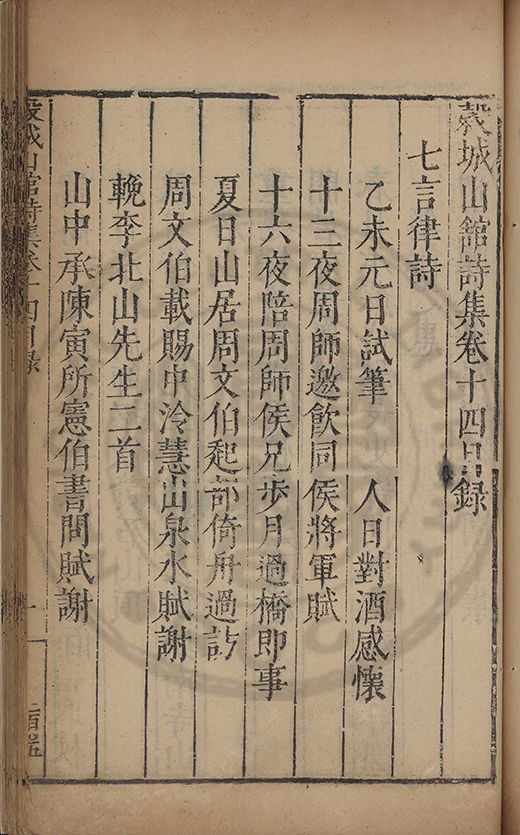 榖城山舘詩集卷十四目録
七言律詩
乙未元日試筆　人日對酒感懷
十三夜周師邀飲同侯將軍賦
十六夜陪周師侯兄歩月過橋即事
夏日山居周文伯起部倚舟過訪
周文伯載賜中泠慧山泉水賦謝
輓李北山先生二首
山中承陳寅所憲伯書問賦謝
榖城山舘詩集卷十四目録
一